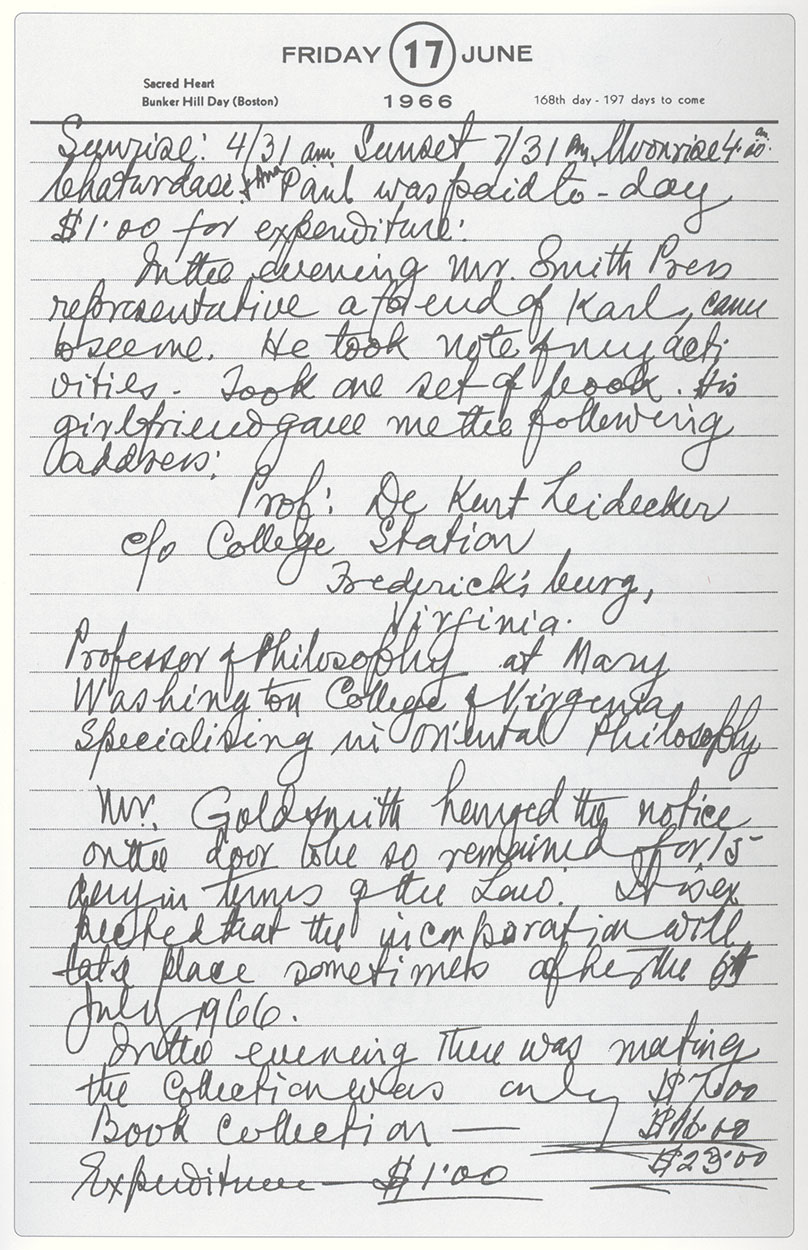 FRIDAY 17 JUNE
Sacred Heart
Bunker Hill Day (Boston)
1966
168th day - 197 days to come
Sunrise: 4/31 am Sunset 7/31 pm, Moonrise 4.
Chaturdasi. + Paul was paid to-day
$1.00 for expenditure.
In the evening Mr. Smith Press
representative a friend of Karl, came
to see me. He took note of my acti
vities. Took one set of book. His
girlfriend gave me the following
address:
Prof: Dr Kurt Leidecker
c/o College Station
Frederick's burg,
Virginia.
Professor of Philosophy at Mary
Washington College of Virginia
Specialising in oriental Philosophy
Mr. Goldsmith hanged the notice
on the door to be so remained for 15
days in terms of the Law. It is ex
pected that the incorporation will
take place sometimes after the 6th
July 1966.
In the evening there was meting
the collection was only $7.00
Book collection — $16.00
$23.00
Expenditure — $1.00